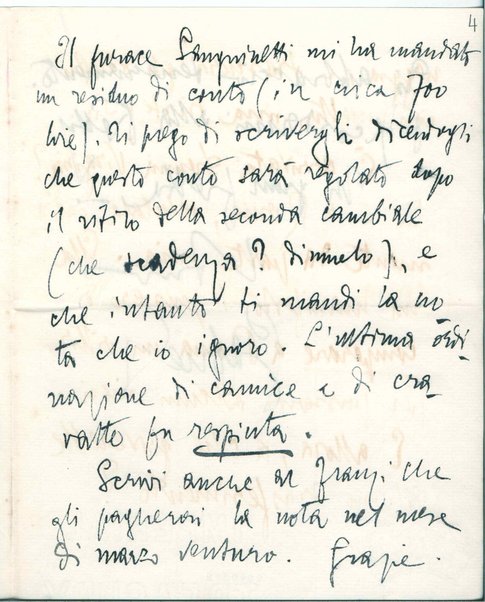 4
Il furace Sanguinetti mi ha mandato
un residuo di conto (in circa 700
lire). Ti prego di scrivergli dicendogli
che questo conto sarà regolato dopo
il ritiro della seconda cambiale
(che scadenza? dimmelo), e
che intanto ti mandi la no-
ta che io ignoro. L'ultima ordi-
nazione di camice e di cra-
vatte fu respinta.
Scrivi anche al Franzi che
gli pagherai la nota nel mese
di marzo venturo. Grazie.